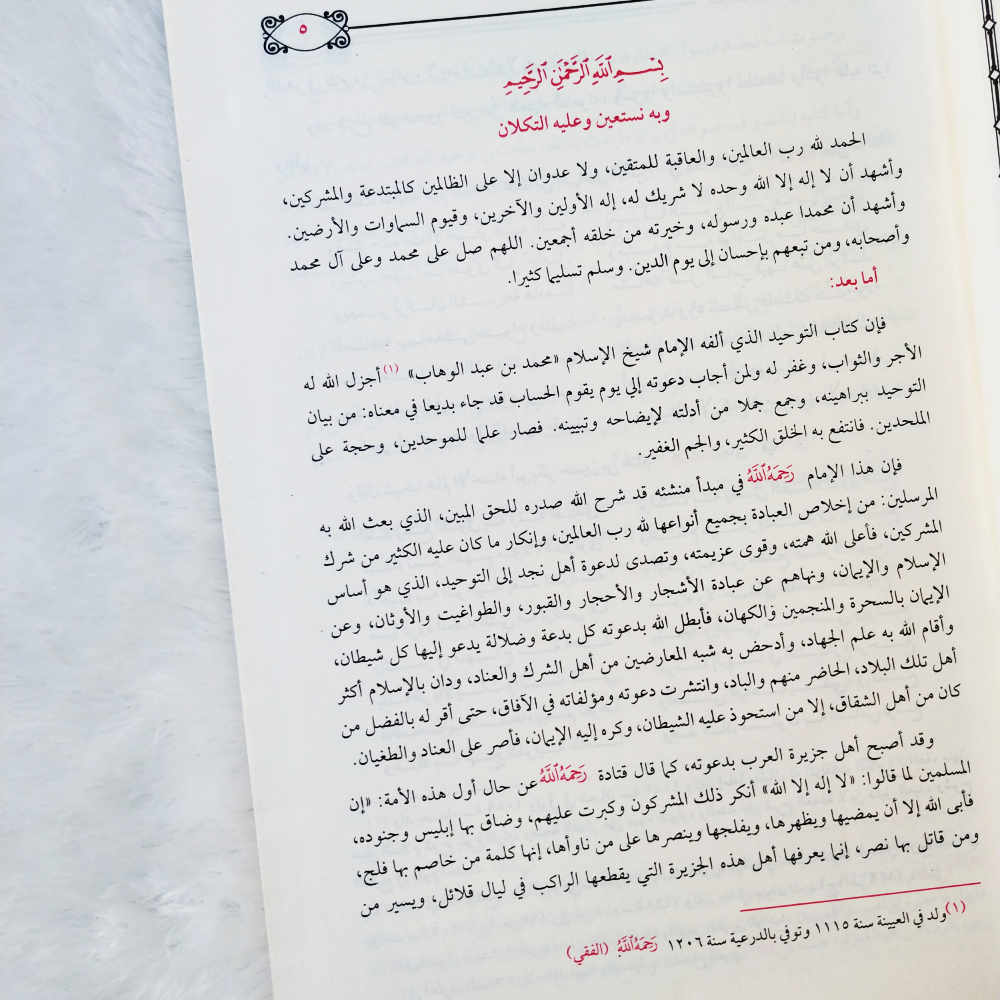 ٥
بِسْمِ ٱللَّهِ ٱلرَّحْمَٰنِ ٱلرَّحِيمِ
وبه نستعين وعليه التكلان
الحمد لله رب العالمين، والعاقبة للمتقين، ولا عدوان إلا على الظالمين كالمبتدعة والمشركين،
وأشهد أن لا إله إلا الله وحده لا شريك له، إله الأولين والآخرين، وقيوم السماوات والأرضين.
وأشهد أن محمدا عبده ورسوله، وخيرته من خلقه أجمعين. اللهم صل على محمد وعلى آل محمد
وأصحابه، ومن تبعهم بإحسان إلى يوم الدين. وسلم تسليما كثيرا.
أما بعد:
فإن كتاب التوحيد الذي ألفه الإمام شيخ الإسلام «محمد بن عبد الوهاب» (١) أجزل الله له
الأجر والثواب، وغفر له ولمن أجاب دعوته إلي يوم يقوم الحساب قد جاء بديعا في معناه: من بيان
التوحيد ببراهينه، وجمع جملا من أدلته لإيضاحه وتبيينه. فصار علما للموحدين، وحجة على
الملحدين. فانتفع به الخلق الكثير، والجم الغفير.
فإن هذا الإمام رَحِمَهُ ٱللَّهُ في مبدأ منشئه قد شرح الله صدره للحق المبين، الذي بعث الله به
المرسلين: من إخلاص العبادة بجميع أنواعها لله رب العالمين، وإنكار ما كان عليه الكثير من شرك
المشركين، فأعلى الله همته، وقوى عزيمته، وتصدى لدعوة أهل نجد إلى التوحيد، الذي هو أساس
الإسلام والإيمان، ونهاهم عن عبادة الأشجار والأحجار والقبور، والطواغيت والأوثان، وعن
الإيمان بالسحرة والمنجمين والكهان، فأبطل الله بدعوته كل بدعة وضلالة يدعو إليها كل شيطان،
وأقام الله به علم الجهاد، وأدحض به شبه المعارضين من أهل الشرك والعناد، ودان بالإسلام أكثر
أهل تلك البلاد، الحاضر منهم والباد، وانتشرت دعوته ومؤلفاته في الآفاق، حتى أقر له بالفضل من
كان من أهل الشقاق، إلا من استحوذ عليه الشيطان، وكره إليه الإيمان، فأصر على العناد والطغيان.
وقد أصبح أهل جزيرة العرب بدعوته، كما قال قتادة رَحِمَهُ ٱللَّهُ عن حال أول هذه الأمة: «إن
المسلمين لما قالوا: «لا إله إلا الله» أنكر ذلك المشركون وكبرت عليهم، وضاق بها إبليس وجنوده،
فأبى الله إلا أن يمضيها ويظهرها، ويفلجها وينصرها على من ناوأها، إنها كلمة من خاصم بها فلج،
ومن قاتل بها نصر، إنما يعرفها أهل هذه الجزيرة التي يقطعها الراكب في ليال قلائل، ويسير من
(١) ولد في العيينة سنة ١١١٥ وتوفي بالدرعية سنة ١٢٠٦ رَحِمَهُ ٱللَّهُ (الفقي)